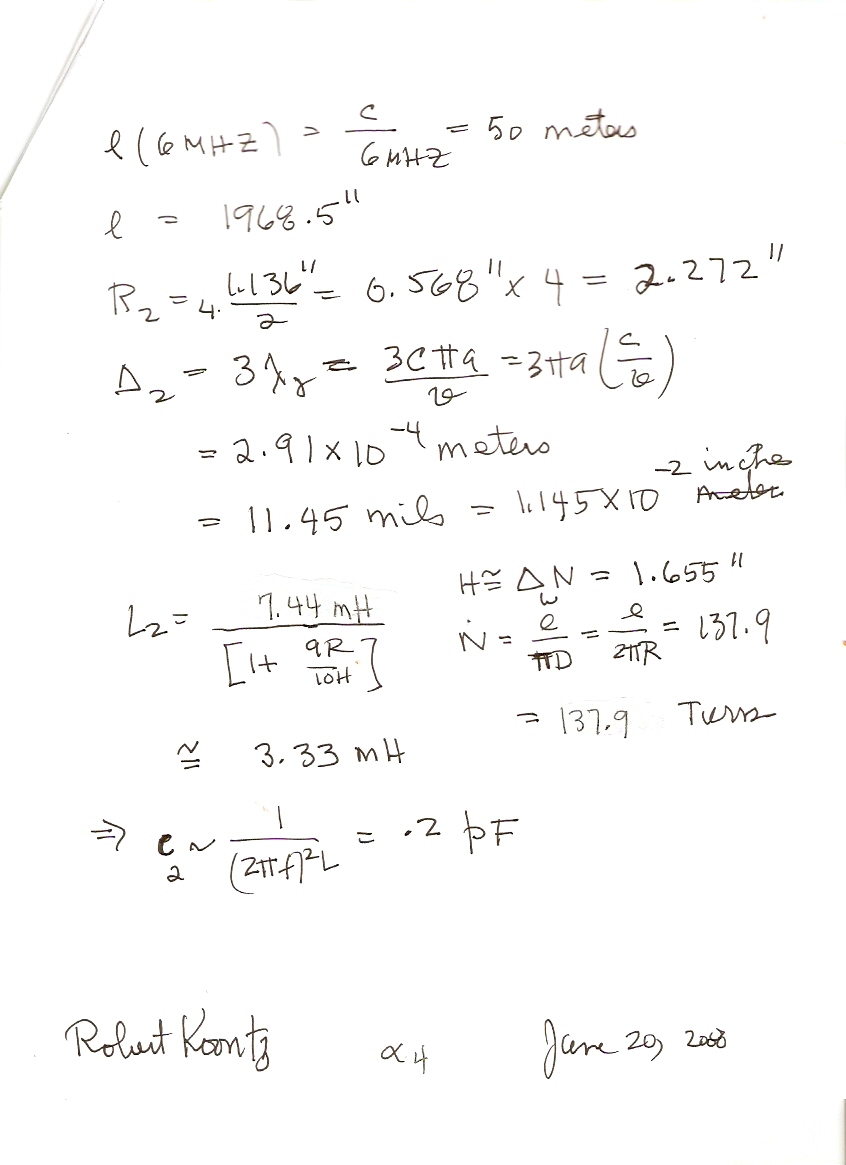 ℓ(6 MHZ) = c/6 MHZ = 50 meters
ℓ = 1968.5"
R₂ = 4. 1.136"/2 = 0.568" x 4 = 2.272"
Δ₂ = 3λγ = 3Cπa/v = 3πa (c/v)
= 2.91 x 10⁻⁴ meters
= 11.45 mils = 1.145 X 10⁻² inches
H ≅ ΔwN = 1.655"
L₂ = 7.44 mH/[1+ 9R/10H]
N = ℓ/πD = ℓ/2πR = 137.9
= 137.9 Turns
≅ 3.33 mH
⇒ C₂ ~ 1/(2πf)²L = .2 pF
Robert Koontz α4 June 20, 2008